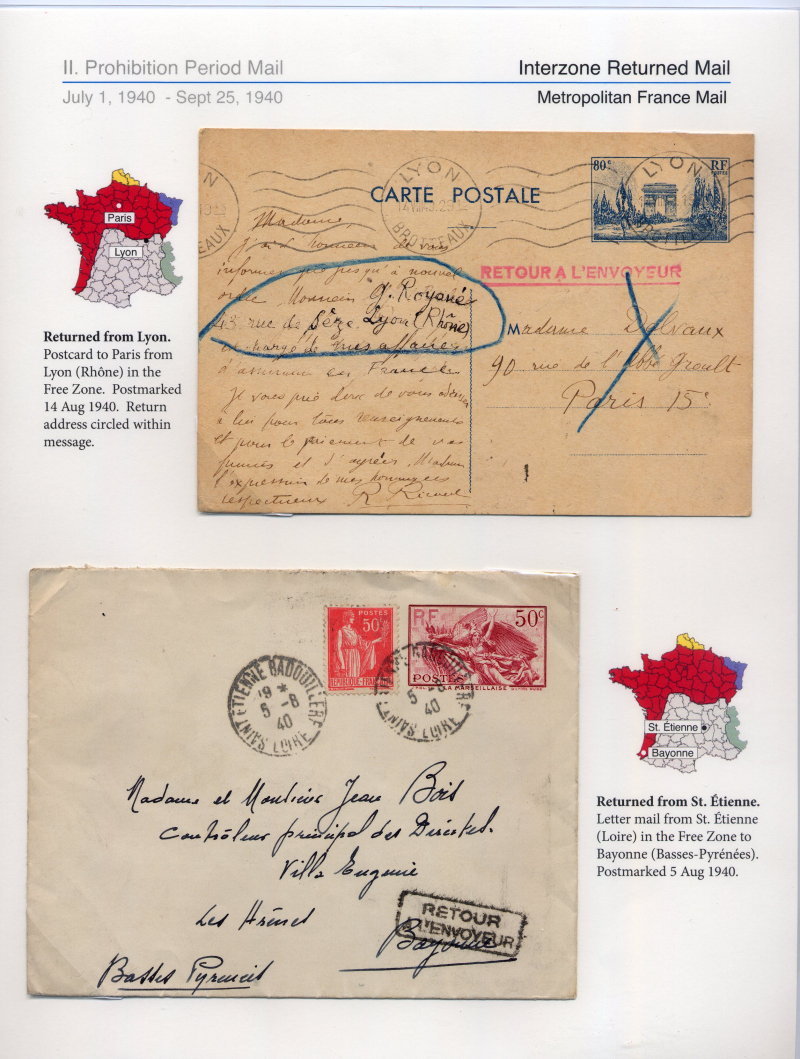 II. Prohibition Period Mail
Interzone Returned Mail
July 1, 1940 - Sept 25, 1940
Metropolitan France Mail
Paris
Lyon
Returned from Lyon.
Postcard to Paris from
Lyon (Rhône) in the
Free Zone. Postmarked
14 Aug 1940. Return
address circled within
message.
LYON
BROTTEAUX
CARTE POSTALE
80c
RF
POSTES
LYON
BROTTEAUX
RETOUR A L'ENVOYEUR
Madame,
j'ai l'honneur de vous
informer que jusqu'à nouvel
ordre Monsieur G. Royané
43 rue de Sèze Lyon (Rhône)
chargé de mes affaires
Je vous prie donc de vous adresser
à lui pour tous renseignements
et pour le paiement de vos
et d'agréer, Madame
l'expression de mes hommages
respectueux R. Ricard
Madame Delvaux
90 rue de l'abbé Groult
Paris 15e
POSTES
50c
REPUBLIQUE FRANÇAISE
RF
50c
POSTES
LA MARSEILLAISE
SAINT-ETIENNE BADOUILLERE
19 *
5 -8
40
LOIRE
5 -8
40
SAINT
LOIRE
Madame et Monsieur Jean Bois
Contrôleur principal des Directes
Villa Eugenie
Les
RETOUR
A L'ENVOYEUR
Bayonne
Basses Pyrenées
St. Étienne
Bayonne
Returned from St. Étienne.
Letter mail from St. Étienne
(Loire) in the Free Zone to
Bayonne (Basses-Pyrénées).
Postmarked 5 Aug 1940.